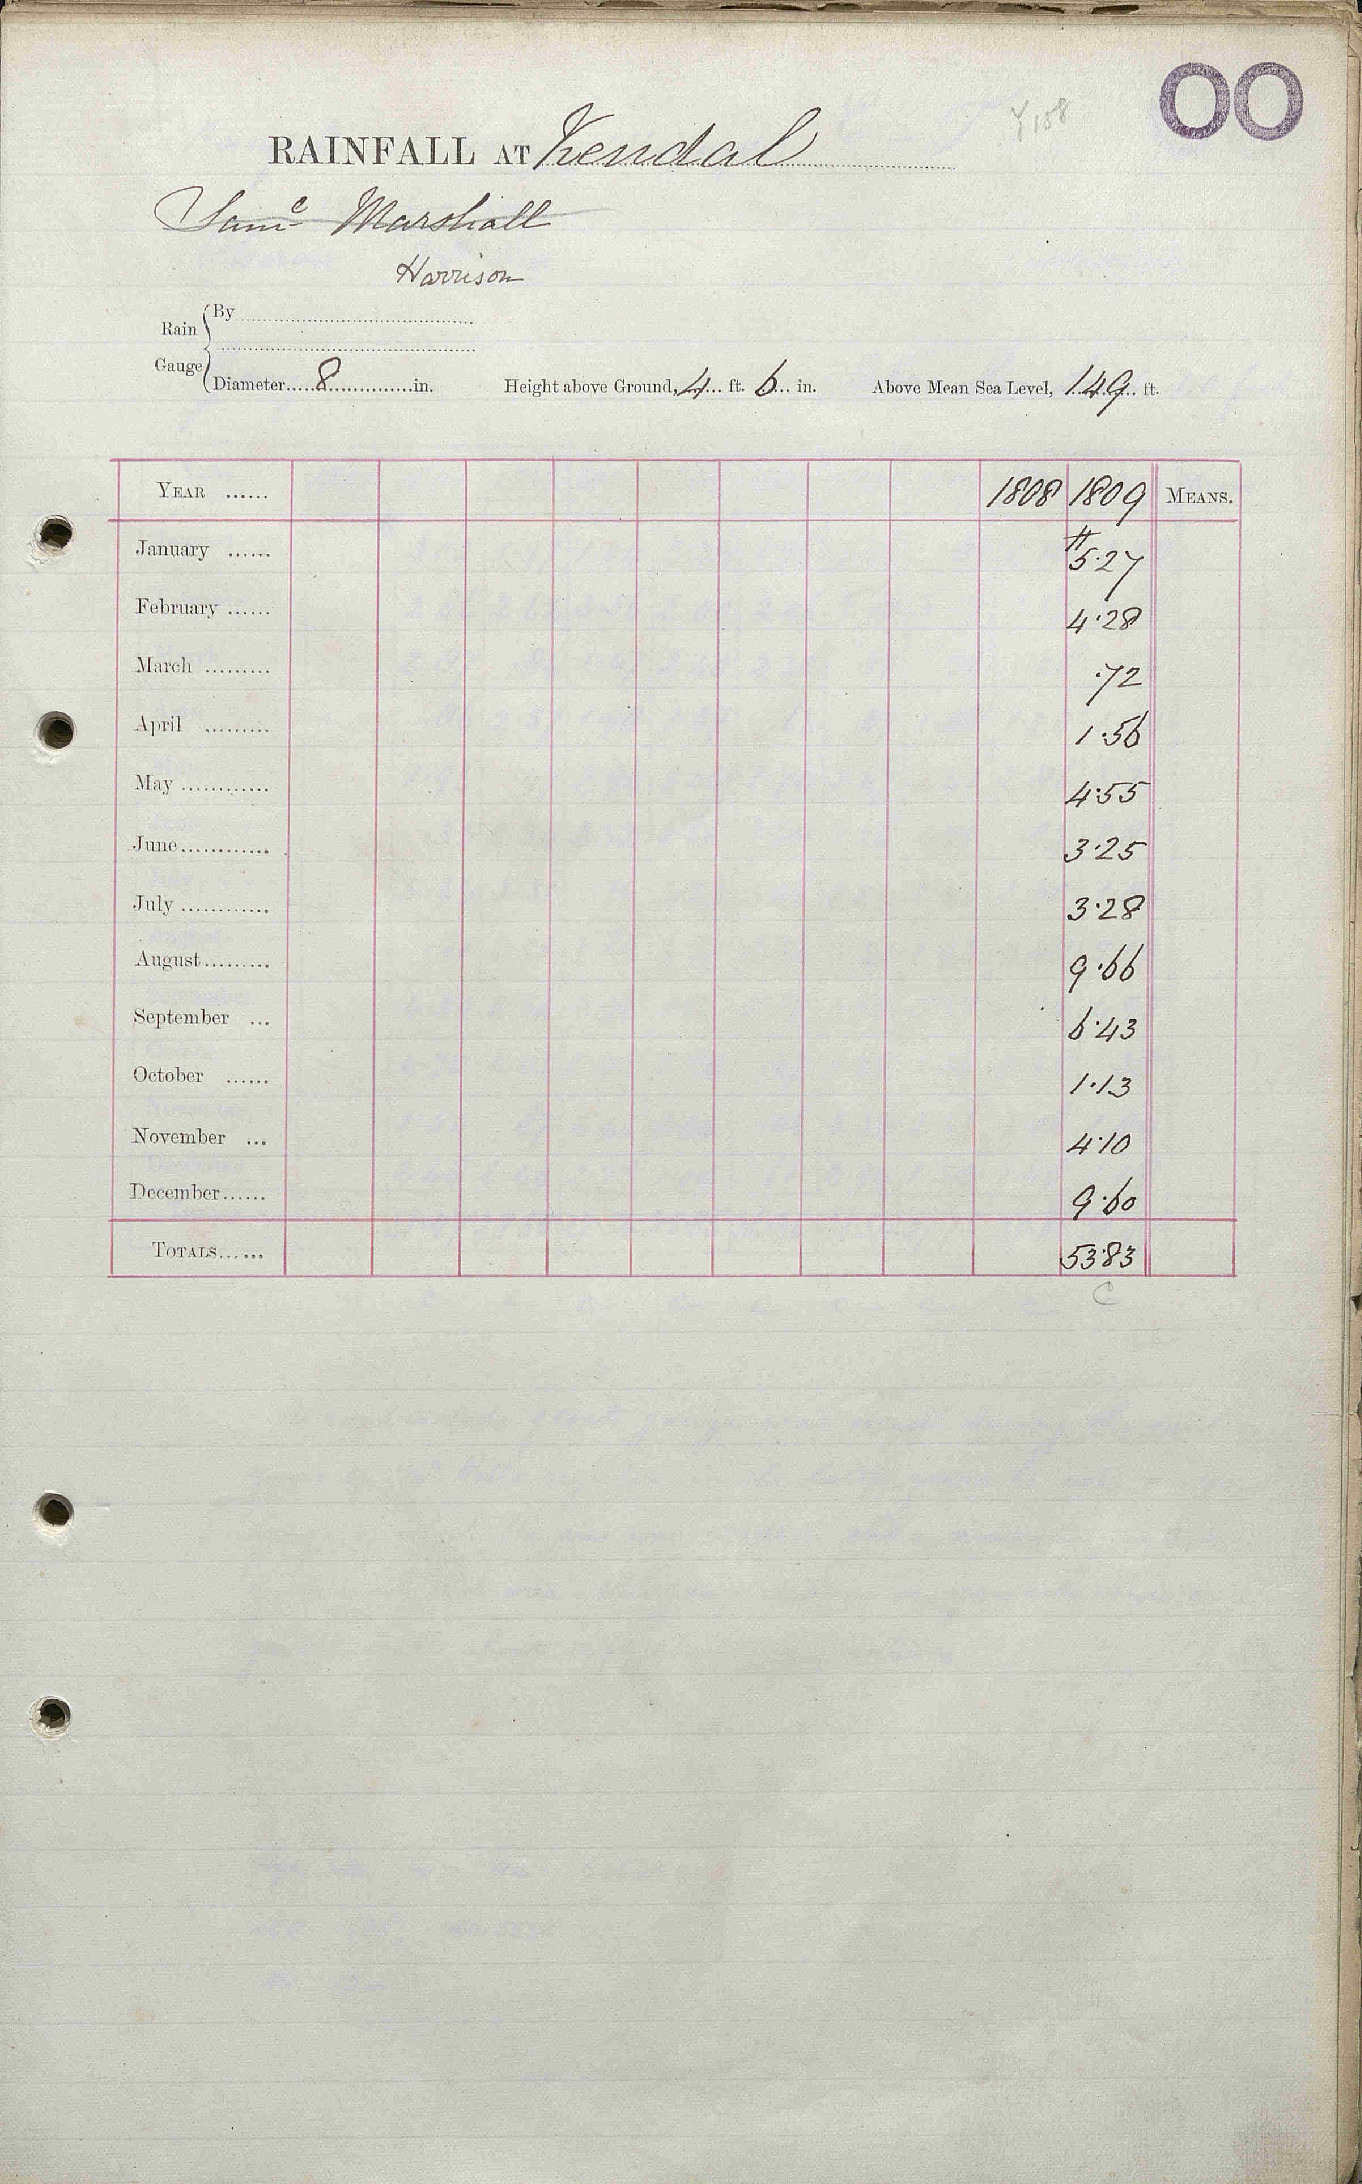 OO
Y 158
RAINFALL AT Kendal
Saml Marshall
Harrison
Rain Gauge
By
Diameter 8 in. Height above Ground, 4 ft. 6 in. Above Mean Sea Level, 149 ft.
YEAR ...... 1808 1809 MEANS.
January ...... H 5.27
February ...... 4.28
March ......... .72
April ......... 1.56
May ............ 4.55
June ............ 3.25
July ............ 3.28
August ......... 9.66
September ... 6.43
October ...... 1.13
November ... 4.10
December ...... 9.60
TOTALS ...... 53.83
C